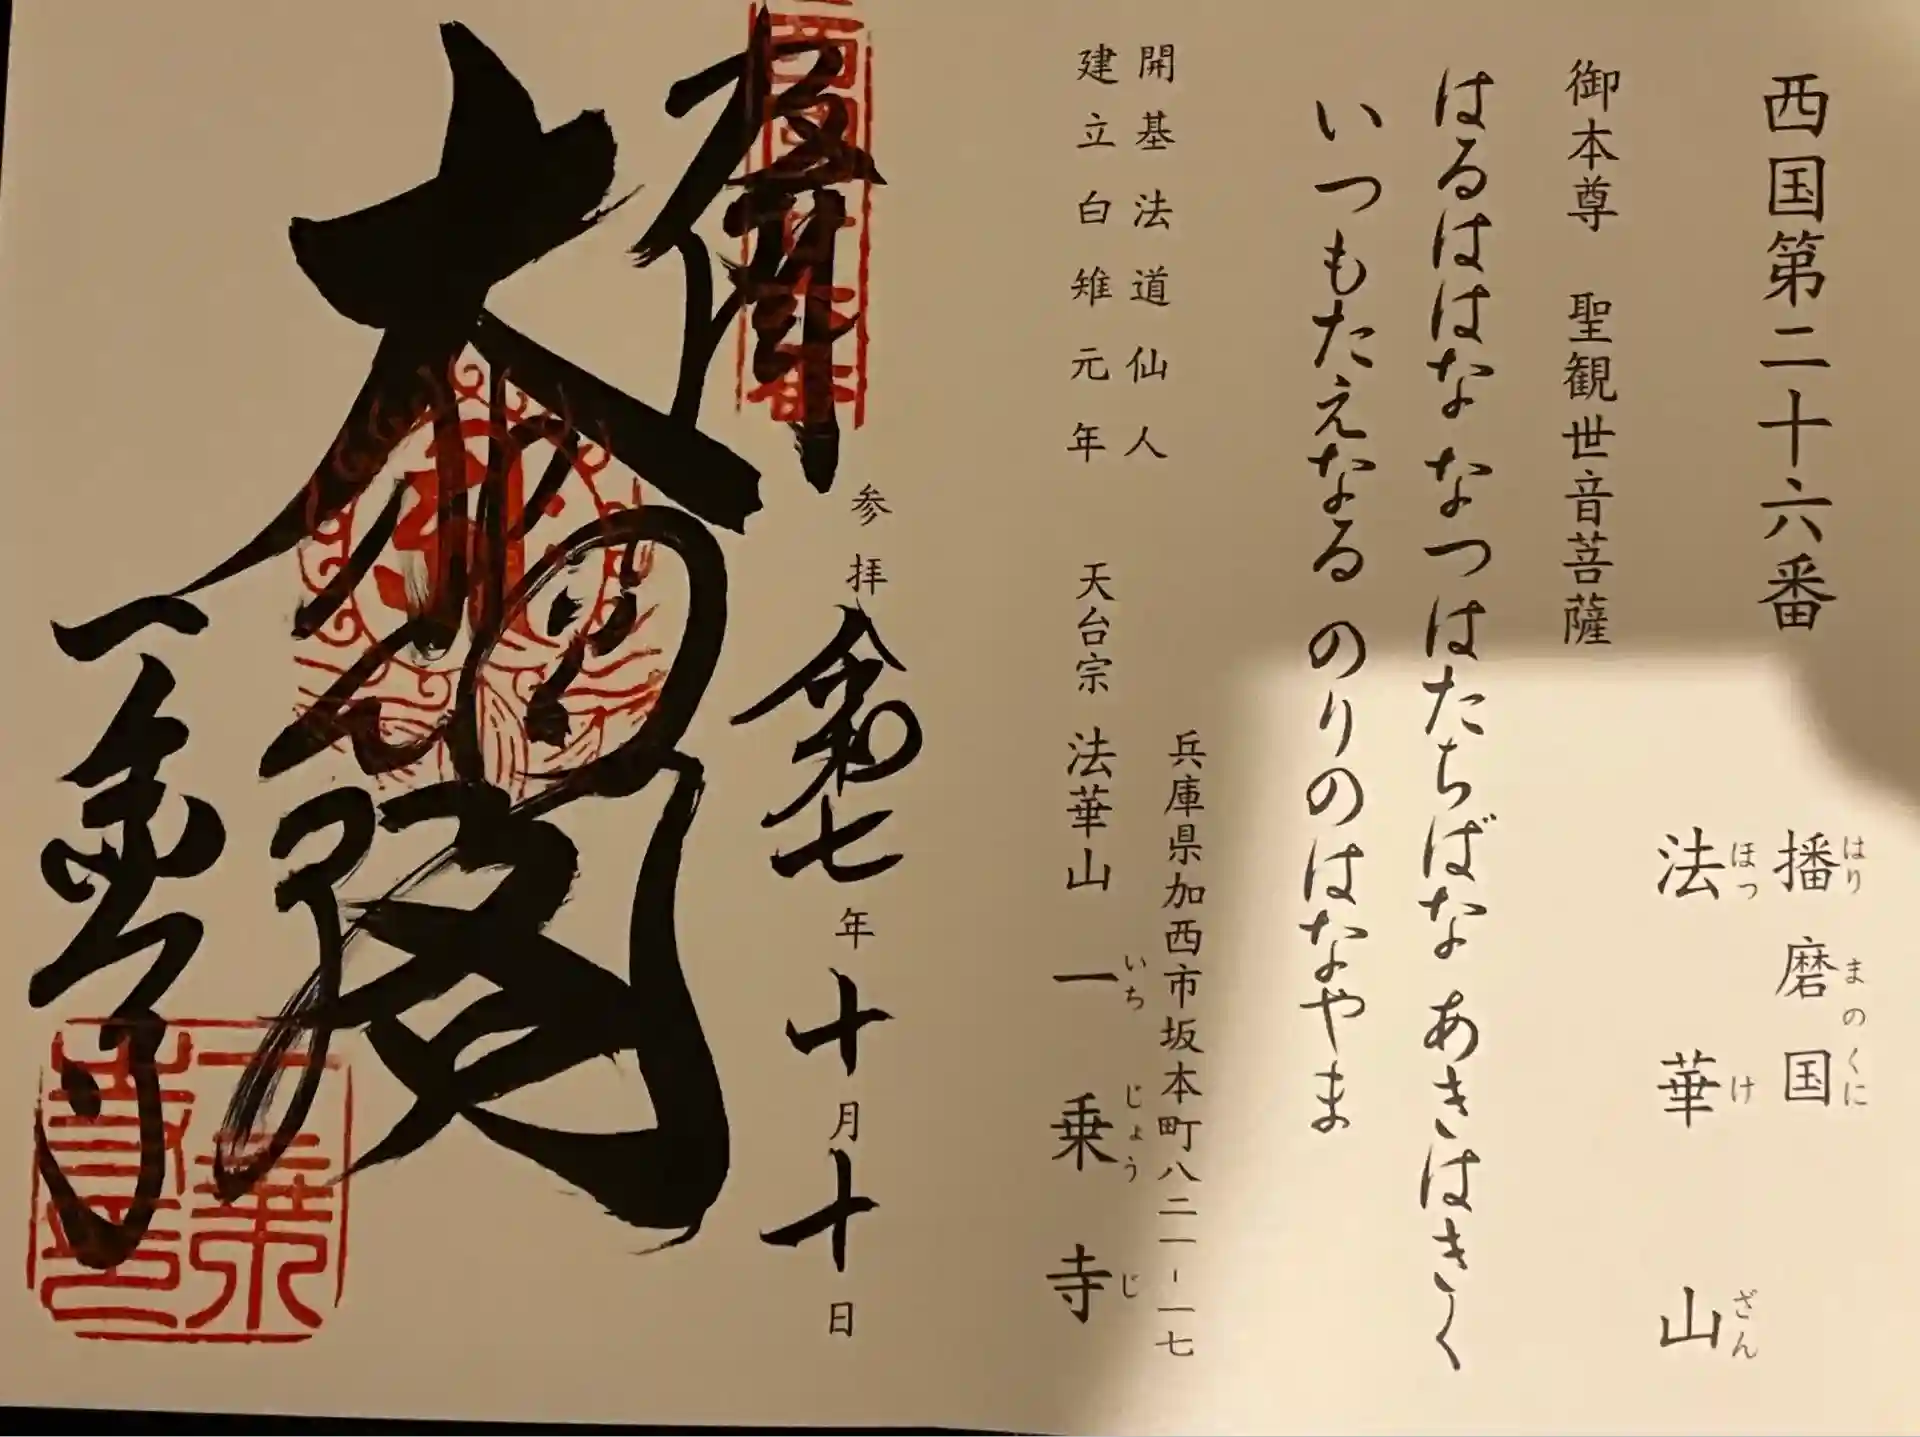 西国第二十六番
播磨国
はりまのくに
法華山
ほっけざん
御本尊 聖観世音菩薩
はるははな なつはたちばな あきはきく
いつもたえなる のりのはなやま
開基法道仙人
建立白雉元年
兵庫県加西市坂本町八二一-一七
天台宗 法華山 一乗寺
いちじょうじ
奉拝
参拝 令和七年十月十日
大悲閣
一乗寺